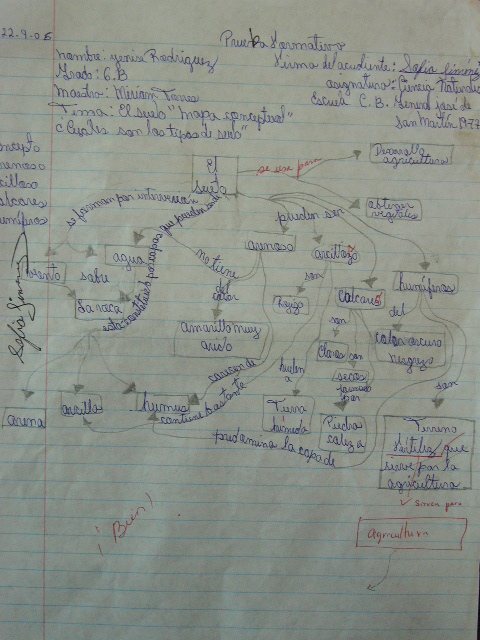 22.9.05
Prueba formativo
nombre: yenise Rodriguez
firma del acudiente: Sofia Jiménez
Grado: 6.B
asignatura: Ciencia Naturales
Maestro: Miriam Torres
Escuela C. B. General José de
San Martín 1977
Tema: El suelo "mapa conceptual"
Cuales son los tipos de suelo"
concepto
arenoso
arcilloso
calcares
humíferos
El
suelo
se usa para
Desarrollo
agricultura
obtener
vegetales
se forman por intervención
pueden ser
viento
sobre
agua
La roca
esta constituido por capas que pueden ser
arena
arcilla
humus
arenoso
no tiene
del
color
amarillo muy
arido
carecen de
contiene bastante
arcilloso
son
Rojizo
huelen
a
Tierra
húmeda
predomina la capa de
calcares
son
Claros
son
secos
formado
por
Piedra
caliza
humíferos
del
color oscuro
negruzco
son
Terreno
fértiliz que
sirve par la
agricultura
sirven para
agricultura
¡Bien!
Sofia Jiménez